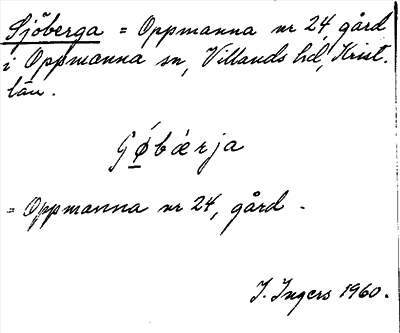 Sjöberga = Oppmanna nr 24, gård
i Oppmanna sn, Villands hd, Krist.
län.
Gǿ̱bǽrja
= Oppmanna nr 24, gård.
I. Ingers 1960.